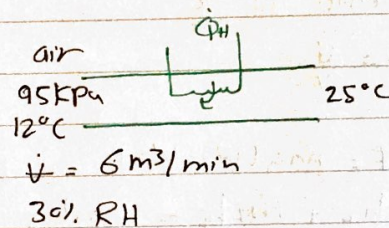 Q̇H
air
95kPa
25°C
12°C
V̇ = 6 m³/min
30% RH